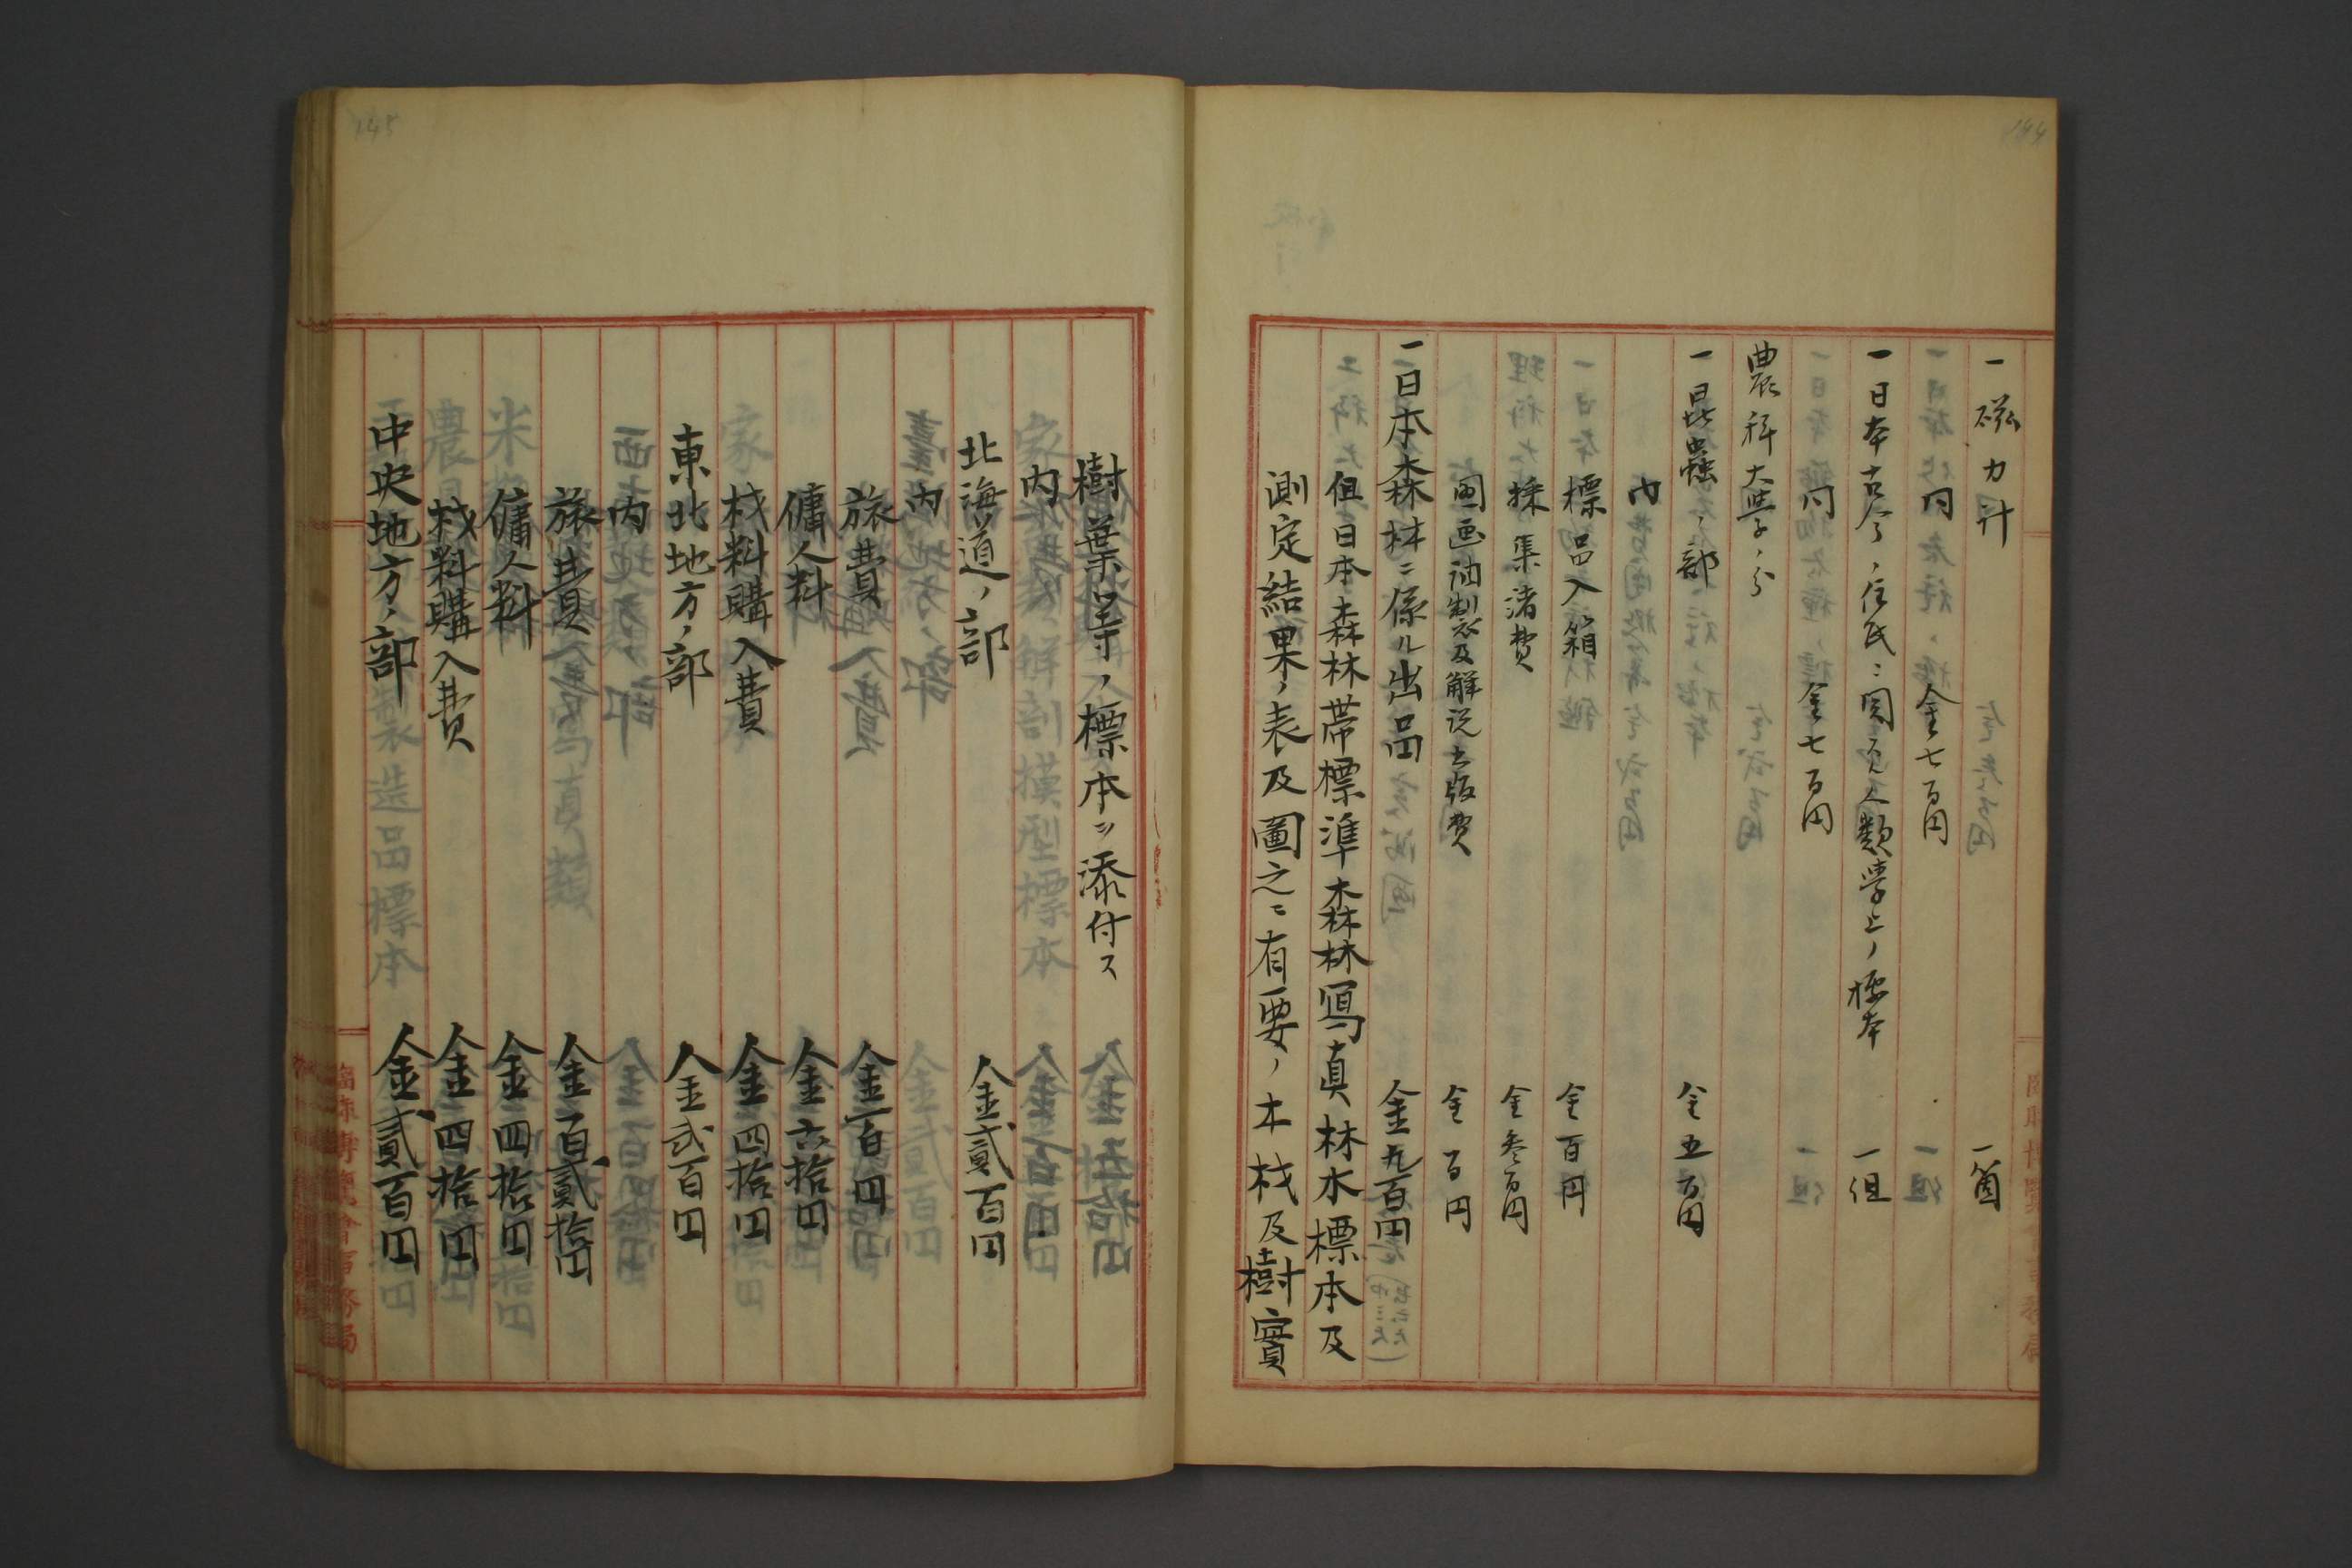 144
一磁力計 一箇
同 金七百円
一日本古今ノ住民ニ関スル人類学上ノ標本 一組
同 金七百円
農科大学ノ分
一昆蟲ノ部 金五百円
内
標品入箱 金百円
採集諸費 金参百円
図画調製及解説出版費 金百円
一日本森林ニ係ル出品 金九百円
但日本森林帯標準森林寫真林木標本及
測定結果ノ表及圖之ニ有要ノ木材及樹實
145
樹葉等ノ標本ヲ添付ス
内
北海道ノ部 金貳百円
内
旅費 金百円
傭人料 金六拾円
材料購入費 金四拾円
東北地方ノ部 金弐百円
内
旅費 金百貳拾円
傭人料 金四拾円
材料購入費 金四拾円
中央地方ノ部 金貳百円
臨時博覽會事務局